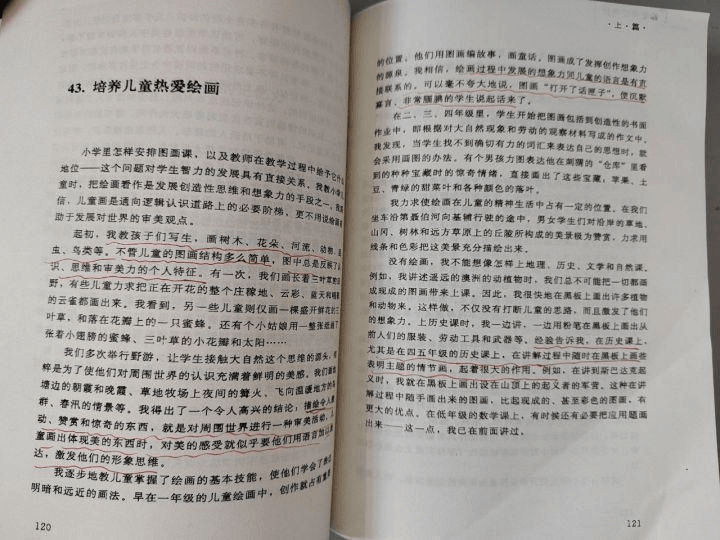 43. 培养儿童热爱绘画
小学里怎样安排图画课，以及教师在教学过程中给予它什么
地位——这个问题对学生智力的发展具有直接关系。我教小学儿
童时，把绘画看作是发展创造性思维和想象力的手段之一。我深
信，儿童画是通向逻辑认识道路上的必要阶梯，更不用说绘画有
助于发展对世界的审美观点。
起初，我教孩子们写生，画树木、花朵、河流、动物、昆
虫、鸟类等。不管儿童的图画结构多么简单，图中总是反映了认
识、思维和审美力的个人特征。有一次，我们画长着三叶草的田
野，有些儿童力求把正在开花的整个庄稼地、云彩、蓝天和唱歌
的云雀都画出来。我看到，另一些儿童则仅画一棵盛开鲜花的三
叶草，和落在花瓣上的一只蜜蜂。还有个小姑娘用一整张纸画了
张着小翅膀的蜜蜂、三叶草的小花瓣和太阳……
我们多次举行野游，让学生接触大自然这个思维的源头，纯
粹是为了使他们对周围世界的认识充满着鲜明的美感。我们画池
塘边的朝霞和晚霞、草地牧场上夜间的篝火、飞向温暖地方的鸟
群、春汛的情景等。我得出了一个令人高兴的结论：描绘令人激
动、赞赏和惊奇的东西，就是对周围世界进行一种审美活动。儿
童画出体现美的东西时，对美的感受就似乎要他们用语言加以表
达，激发他们的形象思维。
我逐步地教儿童掌握了绘画的基本技能，使他们学会了表达
明暗和远近的画法。早在一年级的儿童绘画中，创作就占有重要
120
·上·篇·
的位置。他们用图画编故事，画童话。图画成了发挥创作想象力
的源泉。我相信，绘画过程中发展的想象力同儿童的语言是有直
接联系的。可以毫不夸大地说，图画“打开了话匣子”，使沉默
寡言、非常腼腆的学生说起话来了。
在二、三、四年级里，学生开始把图画包括到创造性的书面
作业中，即根据对大自然现象和劳动的观察材料写成的作文中。
我发现，当学生找不到确切有力的词汇来表达自己的思想时，就
会采用画图的办法。有个男孩力图表达他在刺猬的“仓库”里看
到的种种宝藏时的惊奇情绪，直接画出了这些宝藏：苹果、土
豆、青绿的甜菜叶和各种颜色的落叶。
我力求使绘画在儿童的精神生活中占有一定的位置。在我们
坐车沿第聂伯河向基辅行驶的途中，男女学生们对沿岸的草地、
山冈、树林和远方草原上的丘陵所构成的美景极为赞赏，力求用
线条和色彩把这美景充分描绘出来。
没有绘画，我不能想像怎样上地理、历史、文学和自然课。
例如，我讲述遥远的澳洲的动植物时，我们总不可能把一切都画
成现成的图画带来上课。因此，我很快地在黑板上画出许多植物
和动物来。这样做，不仅没有打断儿童的思路，而且激发了他们
的想象力。上历史课时，我一边讲，一边用粉笔在黑板上画出从
前人们的服装、劳动工具和武器等。经验告诉我，在历史课上，
尤其是在四五年级的历史课上，在讲解过程中随时在黑板上画些
表明主题的情节画，起着很大的作用。例如，在讲到斯巴达克起
义时，我就在黑板上画出设在山顶上的起义者的军营。这种在讲
解过程中随手画出来的图画，比起现成的、甚至彩色的图画，有
更大的优点。在低年级的数学课上，有时候还有必要把应用题画
出来——这一点，我已在前面讲过。
121